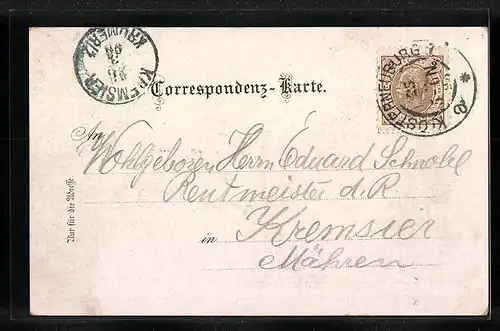 KREMSIER
KROMĚŘÍŽ
KLOSTERNEUBURG 1
Correspondenz-Karte.
An
Wohlgeboren Herrn Eduard Schnabel
Rentmeister d. R.
in Kremsier
Mähren
Nur für die Adresse